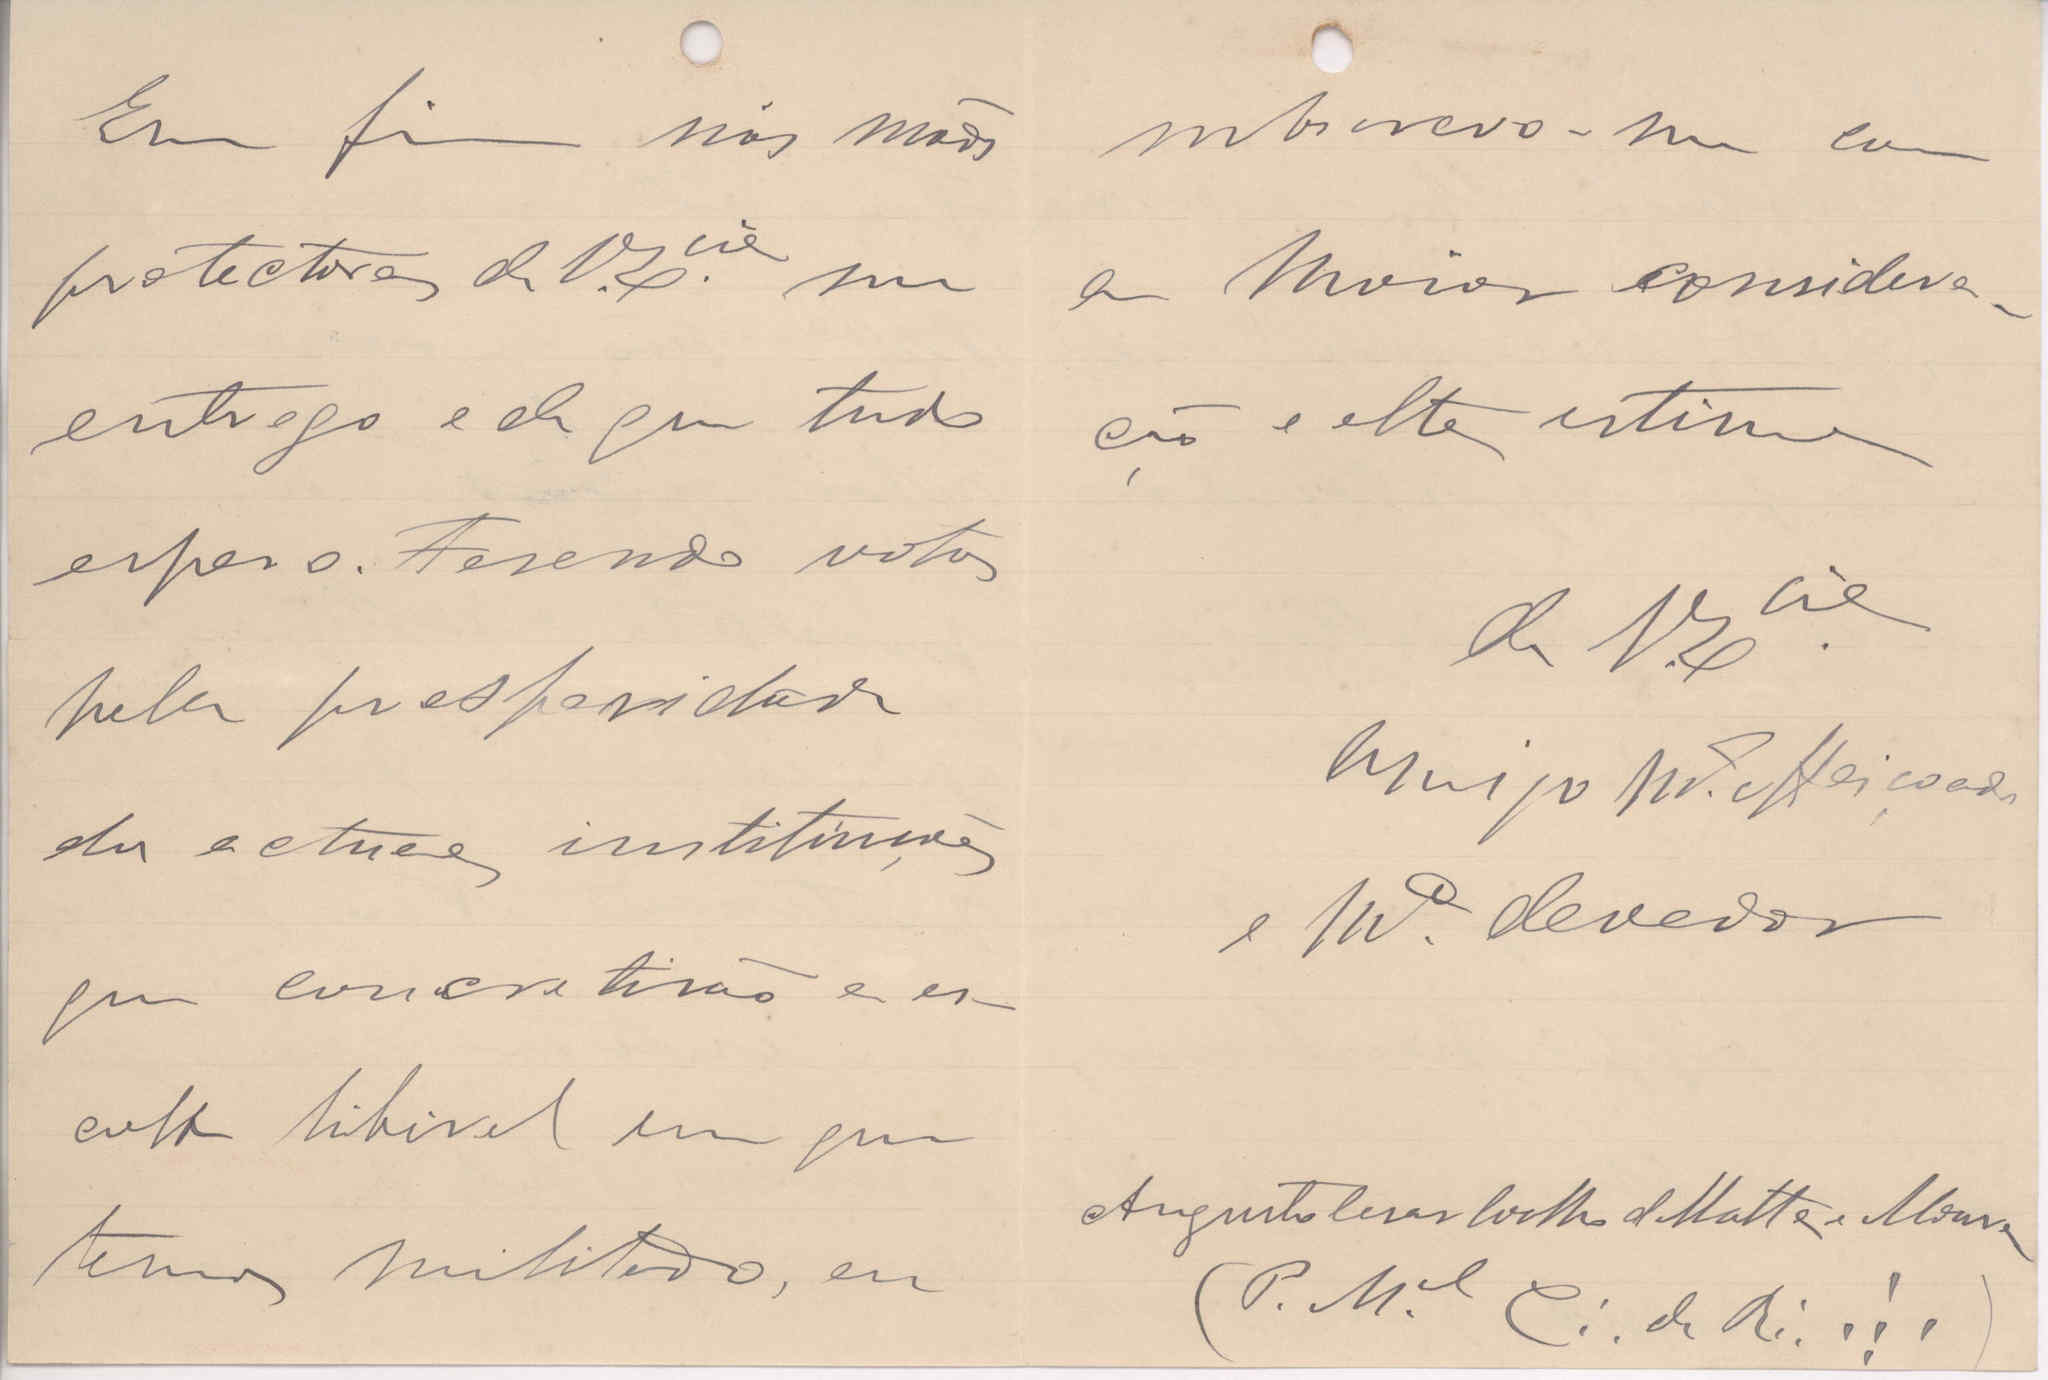 Em fim nas mãos
protectoras de V. Ex.cia me
entrego e de que tudo
espero. Fasendo votos
pela prosperidade
das actuaes instituições
que concretisão a es-
colla liberal em que
temos militado, eu
subscrevo-me com
a Maior considera-
ção e alta estima
de V. Ex.cia
Amigo Mt.º Affeiçoado
e Mt.º devedor
Augusto Cesar Coelho de Motta e Moura
(P. M.el C.i. de Ri. !!!)